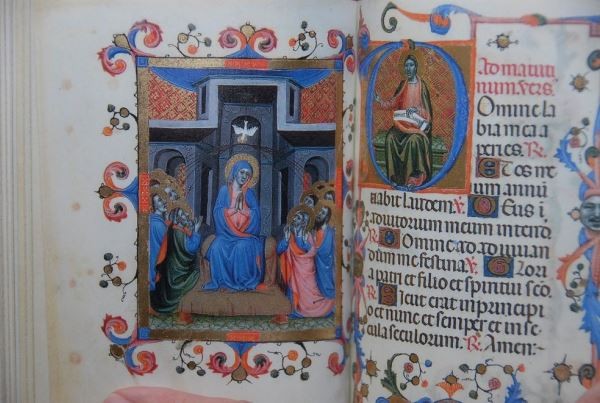 Ad matuti
num vers.
Domine la
bia mea a
peries. R.
Et os me
um annu
ciabit laudem. V. Deus i
adiutorium meum intend
R. Domine ad adiuuan
dum me festina. V. Glori
a patri et filio et spiritui sco.
R. Sicut erat in principi
o et nunc et semper et in se
cula seculorum. R. Amen